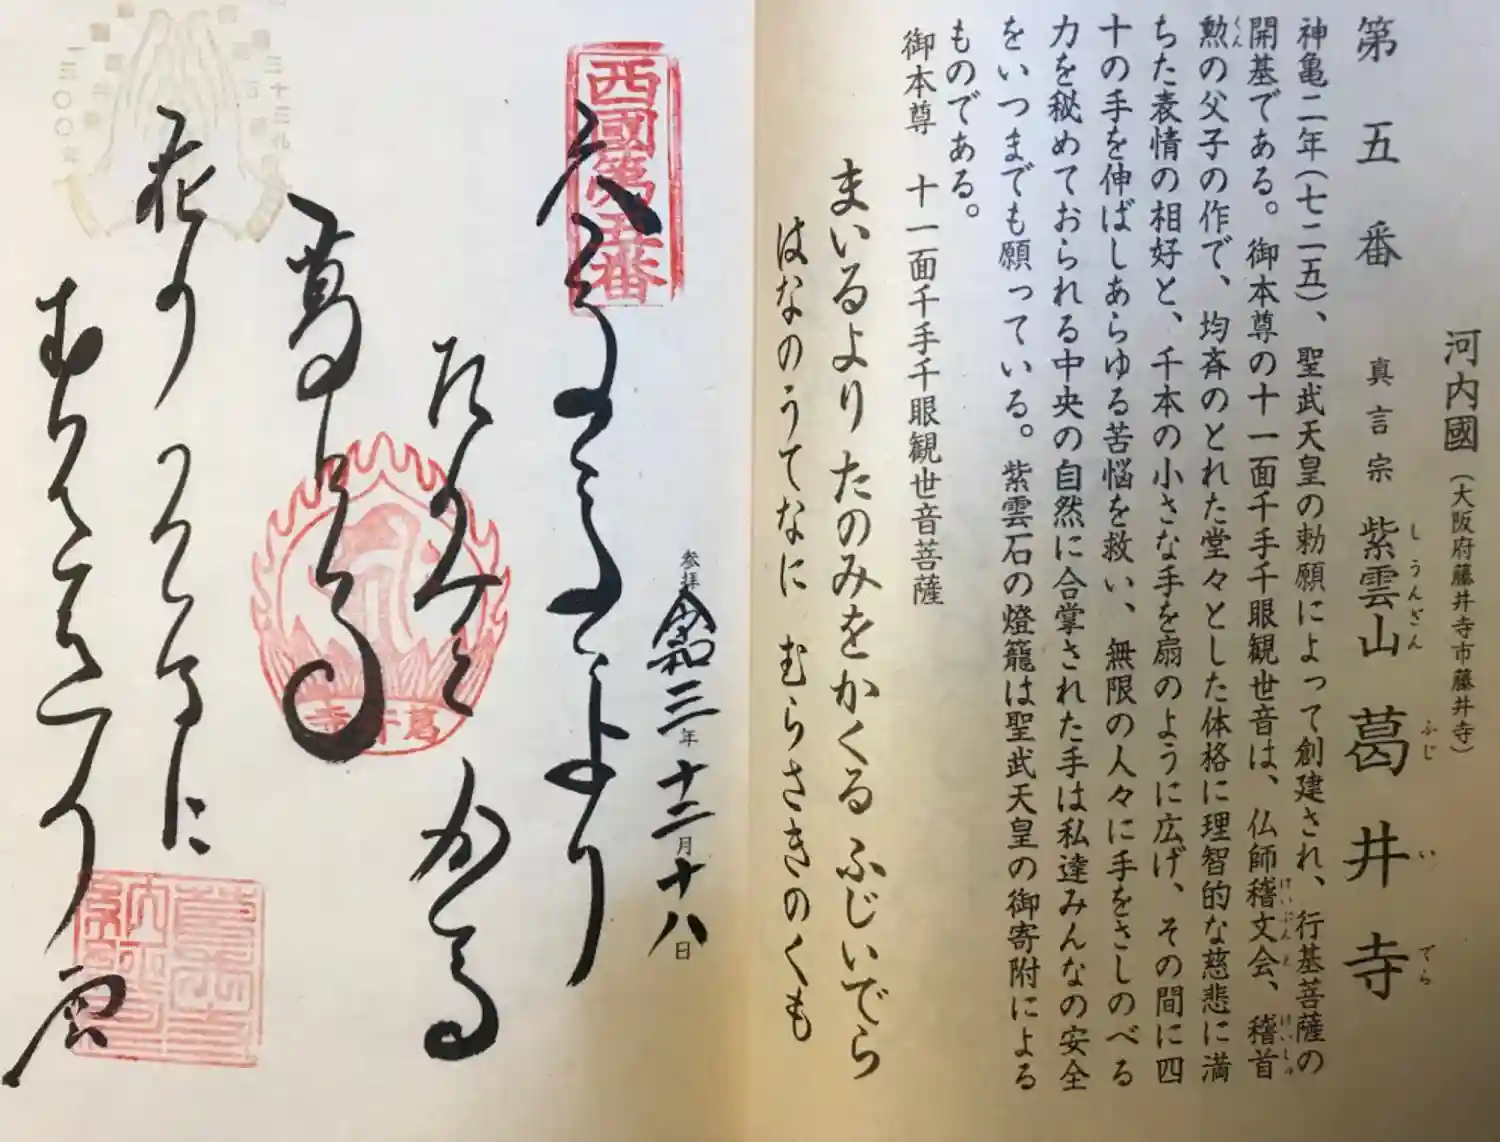 河内國（大阪府藤井寺市藤井寺）
第五番 真言宗 紫雲山 葛井寺
しうんざん ふじ い でら
神亀二年(七二五)、聖武天皇の勅願によって創建され、行基菩薩の
開基である。御本尊の十一面千手千眼観世音は、仏師稽文会、稽首
けいぶんえ けいしゅ
勲の父子の作で、均斉のとれた堂々とした体格に理智的な慈悲に満
くん
ちた表情の相好と、千本の小さな手を扇のように広げ、その間に四
十の手を伸ばしあらゆる苦悩を救い、無限の人々に手をさしのべる
力を秘めておられる中央の自然に合掌された手は私達みんなの安全
をいつまでも願っている。紫雲石の燈籠は聖武天皇の御寄附による
ものである。
御本尊 十一面千手千眼観世音菩薩
まいるより たのみをかくる ふじいでら
はなのうてなに むらさきのくも
参拝 令和三年十二月十八日
西國第五番
たのみを かくる
葛井寺
花の うてなに
むらさきの 雲